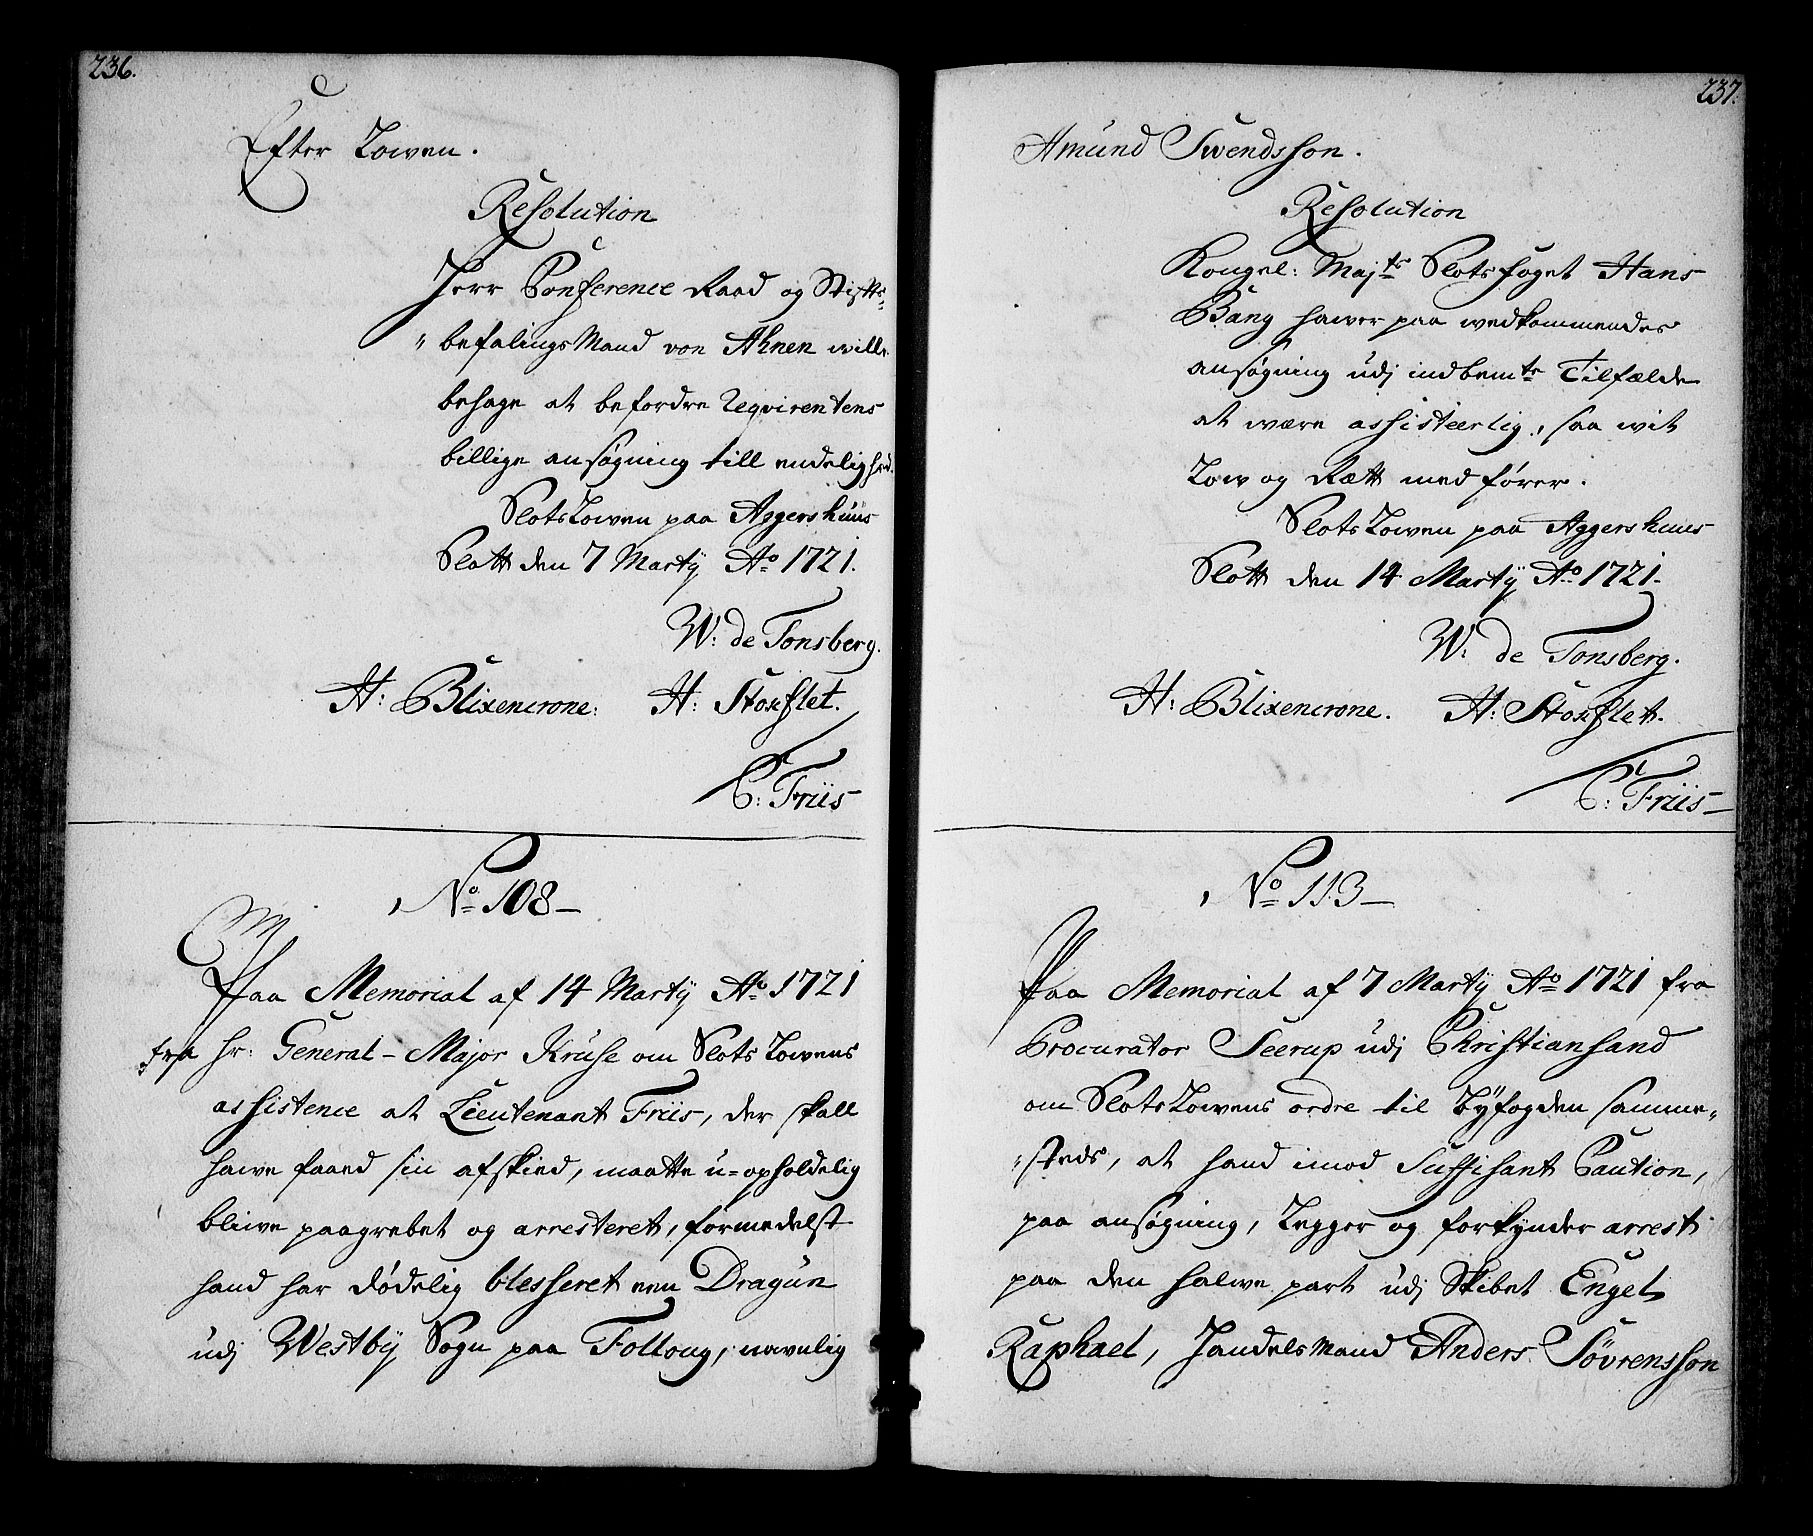 236.
Efter Lowen.
Resolution
Herr Conference Raad og Stifts-
"befalings Mand von Ahnen wille
behage at befordre Reqvirentens
billige ansøgning till endelighed.
Slotslowen paa Aggershuus
Slott den 7 Martÿ Ao 1721.
W: de Tonsberg.
H: Blixencrone: H: Stoxflet.
C: Friis
No 108
Paa Memorial af 14 Martÿ Ao 1721
fra hr: General-Major Kruse om Slotslowens
assistence at Lieutenant Friis, der skall
hawe faaed sin afskied, maatte u-opholdelig
bliwe paagrebet og arresteret, formedelst
hand har dødelig blesseret een Dragun
udj Westbÿ Sogn paa Follоug, nawnlig
237.
Amund Swendsson.
Resolution
Kongel: Majts Slotsfoget Hans
Bang hawer paa wedkommendes
ansøgning udj indbemte Tilfælde
at wære assisteerlig, saa wit
Low og Rætt medfører.
Slotslowen paa Aggershuus
Slott den 14 Martÿ Ao 1721.
W: de Tonsberg.
H: Blixencrone. H: Stoxflet.
C: Friis
No 113
Paa Memorial af 7 Martÿ Ao 1721 fra
Procurator Seerup udj Christiansand
om Slotslowens ordre til Bÿfogden samme-
"steds, at hand imod Suffisant Caution,
paa ansøgning, legger og forkynder arrest
paa den halwe part udj Skibet Engel
Raphael, Handelsmand Anders Sövrensson